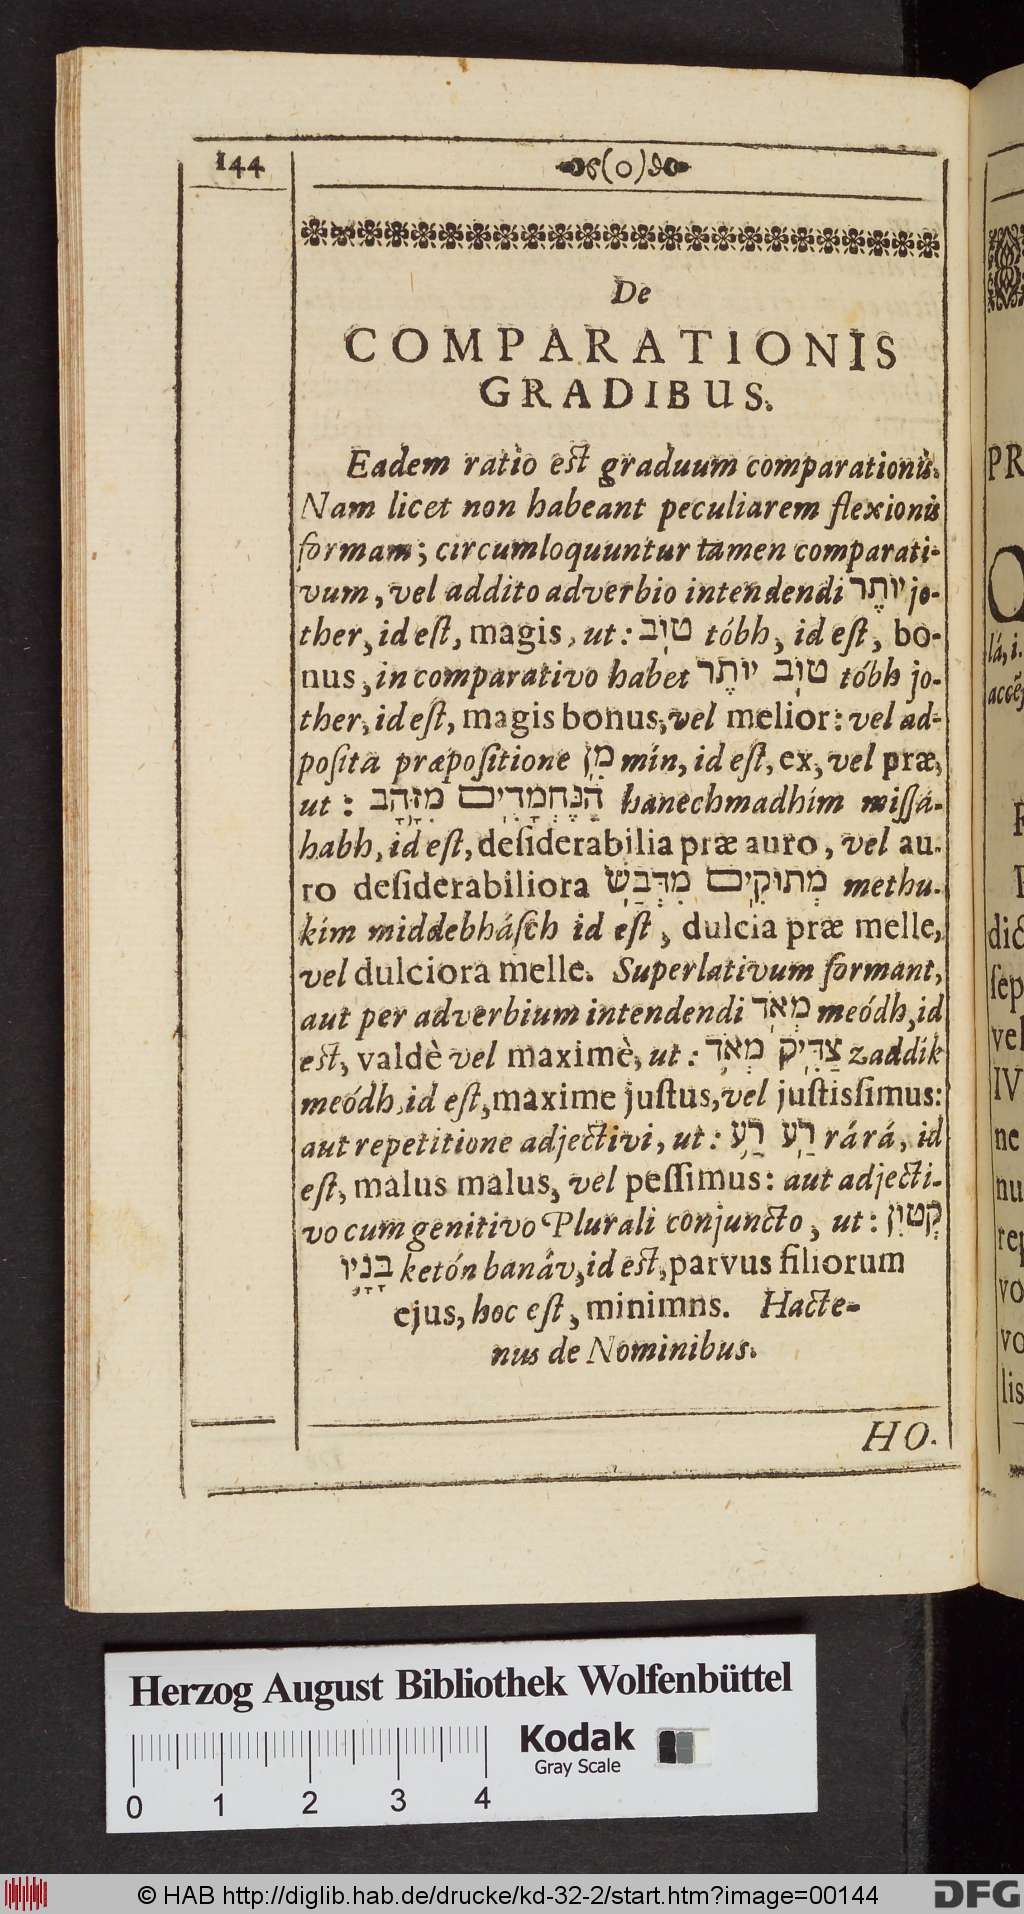 144
(o)
De
COMPARATIONIS
GRADIBUS.
Eadem ratio est graduum comparationis.
Nam licet non habeant peculiarem flexionis
formam; circumloquuntur tamen comparati-
vum, vel addito adverbio intendendi יוֹתֶר jo-
ther, id eſt, magis, ut: טוֹב tóbh, id eſt, bo-
nus, in comparativo habet טוֹב יוֹתֶר tóbh jo-
ther, id eſt, magis bonus, vel melior: vel ad-
poſita præpoſitione מִן mín, id eſt, ex, vel præ,
ut: הַנֶּחְמָדִים מִזָּהָב hanechmadhím miſſá-
habh, id eſt, deſiderabilia præ auro, vel au-
ro deſiderabiliora מְתוּקִים מִדְּבַשׁ methu-
kím middebháſch id eſt, dulcia præ melle,
vel dulciora melle. Superlativum formant,
aut per adverbium intendendi מְאֹד meódh, id
est, valdè vel maximè, ut: צַדִּיק מְאֹד zaddik
meódh, id eſt, maxime juſtus, vel juſtisſimus:
aut repetitione adjectivi, ut: רַע רַע rárá, id
eſt, malus malus, vel peſſimus: aut adjecti-
vo cum genitivo Plurali conjuncto, ut: קְטוֹן
בָּנָיו ketón banâv, id est, parvus filiorum
ejus, hoc eſt, minimns. Hacte-
nus de Nominibus.
HO.
PR
lá, i.
dic
ſep
vel
IV
ne
nu
rep
vo
vo
lis
Herzog August Bibliothek Wolfenbüttel
Kodak
Gray Scale
0 1 2 3 4
© HAB http://diglib.hab.de/drucke/kd-32-2/start.htm?image=00144
DFG